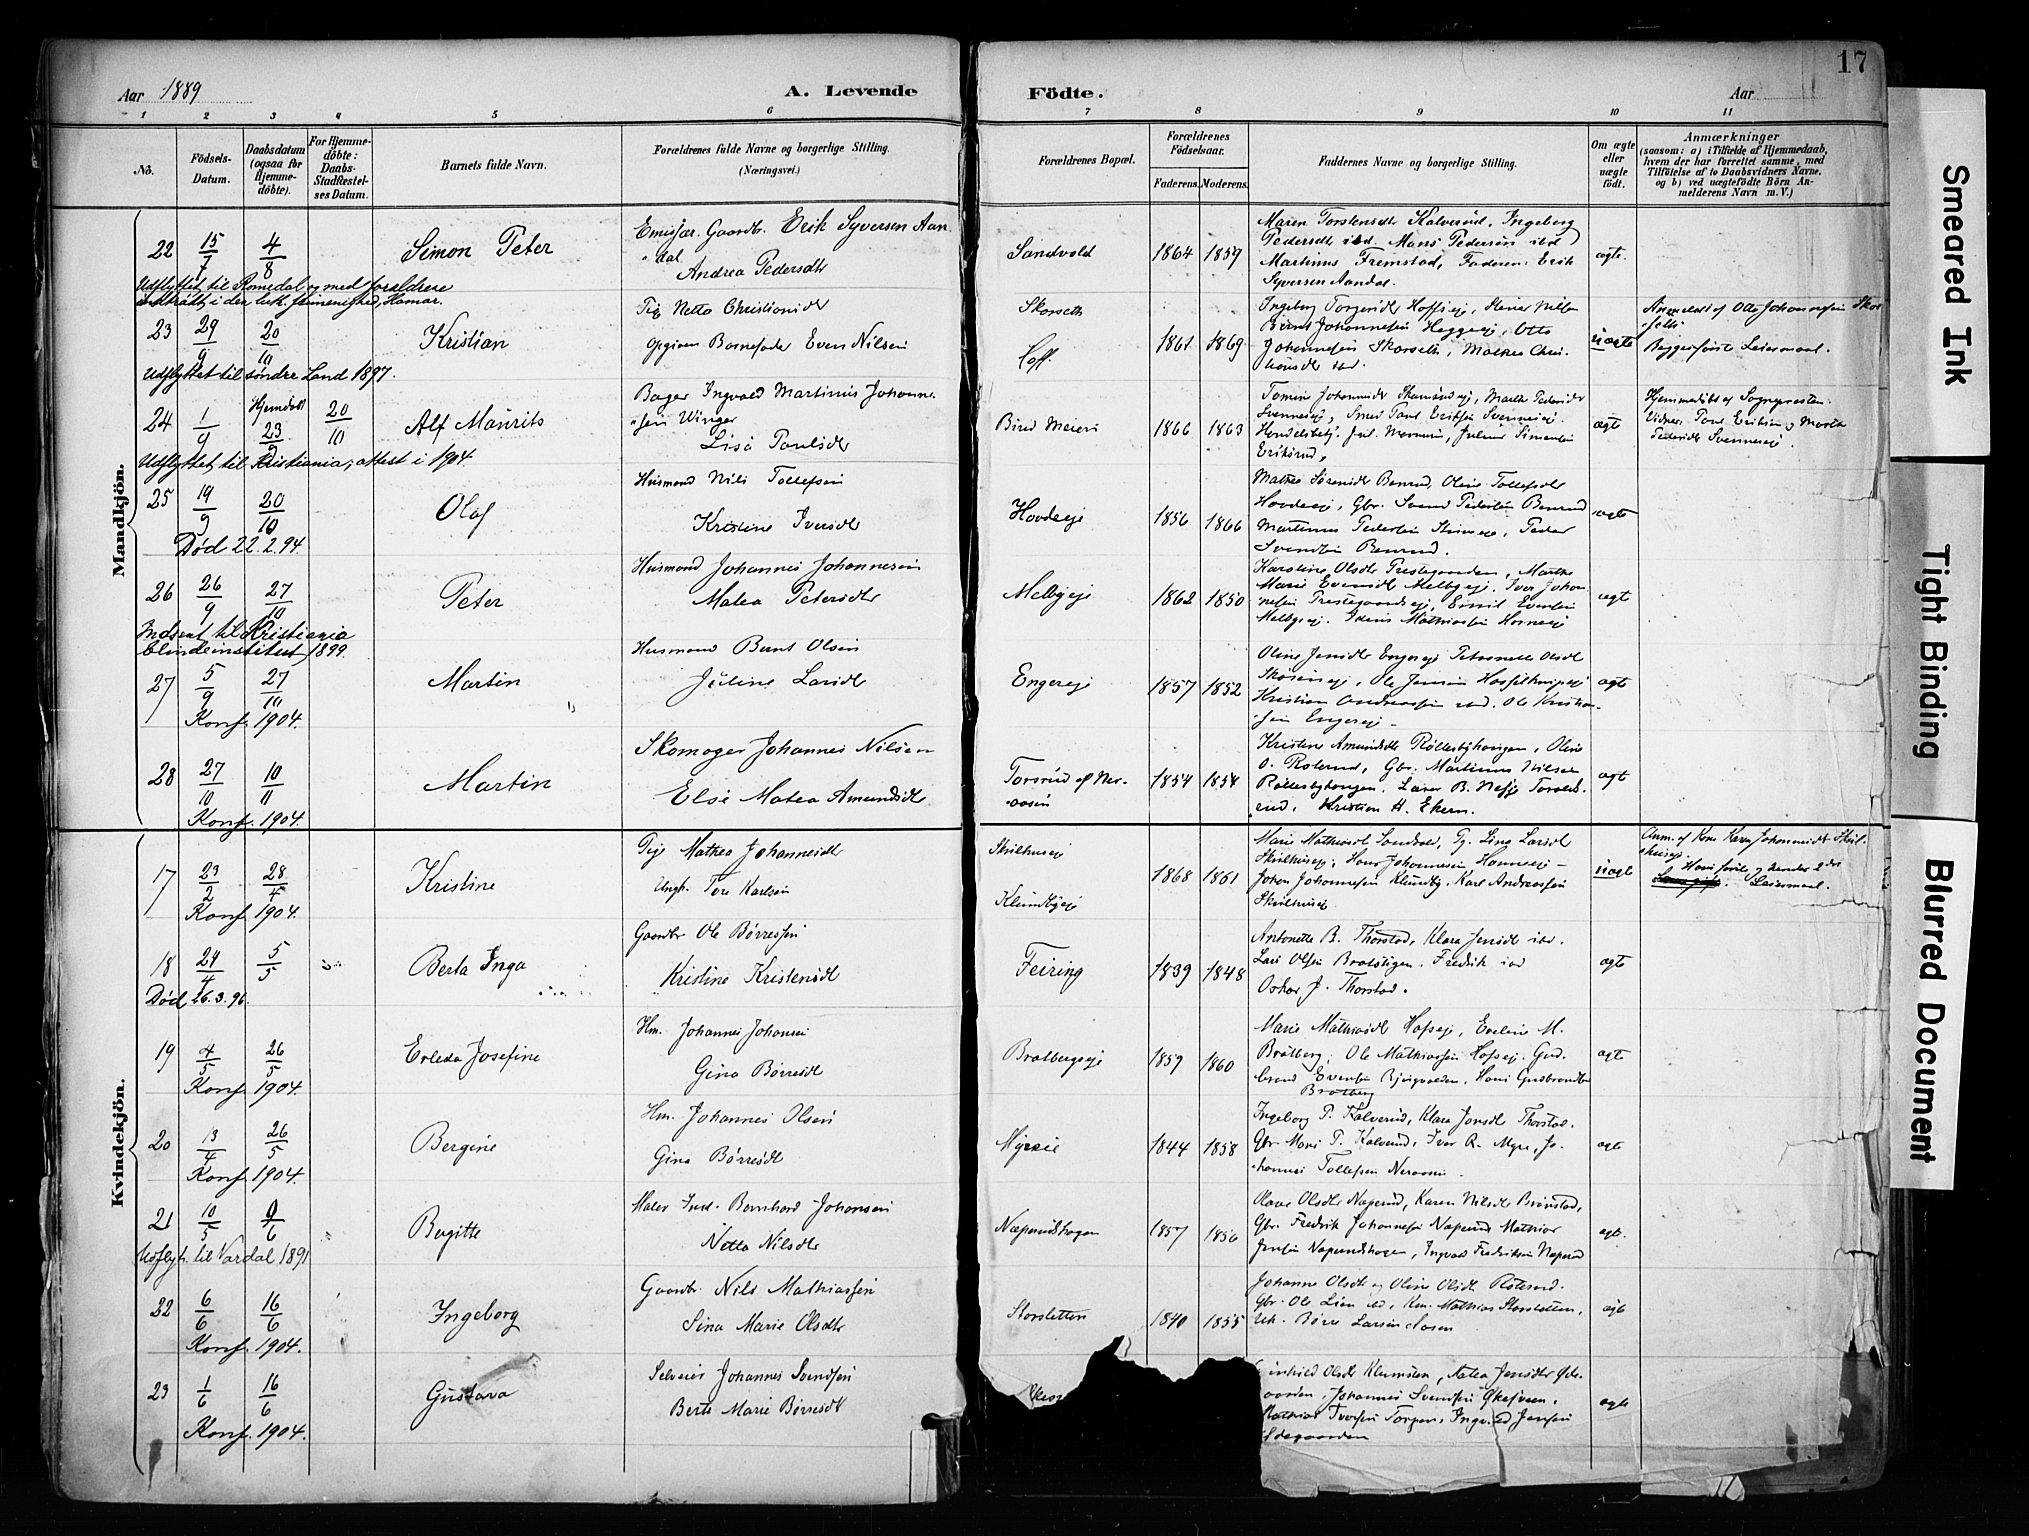 17
Aar 1889
A. Levende
Födte.
Aar
1 2 3 4 5 6 7 8 9 10 11
No.
Födsels-Datum.
Daabsdatum (ogsaa for Hjemmedöbte).
For Hjemmedöbte: Daabs-Stadfæstelses Datum.
Barnets fulde Navn.
Forældrenes fulde Navne og borgerlige Stilling. (Næringsvei.)
Forældrenes Bopæl.
Forældrenes Födselsaar.
Faderens. Moderens.
Faddernes Navne og borgerlige Stilling.
Om ægte eller uægte födt.
Anmærkninger
(saasom: a) i Tilfælde af Hjemmedaab, hvem der har forrettet samme, med Tilföielse af to Daabsvidners Navne, og b) ved uægtefödte Börn Anmelderens Navn m. V.)
Mandkjön.
22 15/7 4/8 Simon Peter
Emissær. Gaardbr. Erik Syversen Aandal
Andrea Pedersdtr
Sandvold 1864 1859
Maren Torstensdtr Kalverud, Ingeborg
Pedersdtr ibd, Mons Pedersen ibd
Martinus Fremstad, Faderen Erik
Syversen Aandal
ægte.
Udflyttet til Romedal og med forældrene
indtraadt i den luth. frimenighed, Hamar.
23 29/9 20/10 Kristian
Pige Netta Christiansdtr
opgiven Barnefader Even Nilsen
Skarseth
Hoff
1861 1869
Ingeborg Torgersdtr Hoffseje,
Bernt Johannesen Heggeeje, Otto
Johannesen Skarseth, Mathea Chri-
stiansdtr ibd.
uægte
Anmeldt af Otto Johannesen Skar-
seth
Begges förste Leiermaal.
Udflyttet til söndre Land 1897.
24 1/9 Hjemdöbt 23/9 20/10 Alf Mauritz
Bager Ingvald Martinius Johanne-
sen Winger
Lise Paulsdtr
Bird Meieri 1866 1863
Svenneseje, Smed Paul Eriksen Svenneseje,
Eriksrud,
ægte
Hjemmedöbt af Sognepresten.
Vidner Paul Eriksen og Marthe
Pedersdtr Svenneseje
Udflyttet til Kristiania, attest i 1904.
25 19/9 20/10 Olaf
Husmand Nils Tollefsen
Kristine Iversdtr
Hovdeeje 1856 1866
Mathea Sörensdtr Benrud, Oline Tollefsdtr
Hovdeeje, Gbr. Svend Pedersen Benrud
Martinus Pedersen , Peder
Svendsen Benrud.
ægte
Död 22.2.94.
26 26/9 27/10 Peter
Husmand Johannes Johannesen
Matea Petersdtr
Melbyeje 1862 1850
Karoline Olsdtr Prestegaarden, Marthe
Marie Evensdtr Melbyeje, Iver Johan-
nesen Prestegaardseje, Emil Evensen
Melbyeje. Mathiassen
ægte
Indsent til Kristiania
blindeinstitut 1899.
27 5/9 27/10 Martin
Husmand Bernt Olsen
Juline Larsdtr
Engereje 1857 1852
Oline Jensdtr Engereje Petronelle Olsdtr
Ole Jensen
Kristian Andreassen ibd. Ole Kristian-
sen Engereje
ægte
Konf. 1904.
28 27/10 10/11 Martin
Skomager Johannes Nilsen
Else Matea Amundsdtr
Torsrud af Ner-
aasen
1854 1854
Kristine Amundsdtr Röllesbyhaugen, Oline
O. Roterud, Gbr. Martinus Nilsen
Röllesbyhaugen. Lærer B.
Kristian H. Ekern.
ægte
Konf. 1904.
Kvindekjön.
17 23/2 28/4 Kristine
Pige Mathea Johannesdtr
Ungk. Tore Karlsen
Skilhuseje
Klundbyeje
1868 1861
Marie Mathiasdtr Sandvol, Pg. Lina Larsdtr
Skilhuseje, Hans Johannesen
Johan Johannesen Klundby, Karl Andreassen
Skilhuseje
uægte
Anm. af Kone Karen Johannesdtr Skil-
huseje.
Hans förste og hendes 2det
Leiermaal.
Konf. 1904.
18 24/4 5/5 Berta Inga
Gaardbr Ole Börressen
Kristine Kristensdtr
Feiring 1839 1848
Antonette B. Thorstad, Klara Jensdtr ibd.
Lars Olsen Bratstigen. Fredrik ibd
Oskar J. Thorstad.
ægte
Död 26.3.96.
19 4/5 26/5 Erleda Josefine
Hm. Johannes Johansen
Gina Börresdtr
Bratbergseje 1859 1860
Marie Mathiasdtr Hofseje, Eveline M.
Bratberg, Ole Mathiassen Hofseje. Gud-
brand Evensen , Hans Gudbrandsen
Bratberg
ægte
Konf. 1904.
20 13/4 26/5 Bergine
Hm. Johannes Olsen
Gina Börresdtr
Myreie 1844 1858
Ingeborg P. Kalverud, Klara Jensdtr Thorstad.
Gbr. Mons P. Kalverud, Iver R. Myre, Jo-
hannes Tollefsen Neraasen.
ægte
Konf. 1904.
21 10/5 9/6 Birgitte
Maler Fred. Bernhard Johansen
Netta Nilsdtr
Næperudhagen 1857 1856
Olave Olsdtr Næperud, Karen Nilsdtr
Gbr. Fredrik Johannesen Næperud Mathias
Jensen Næperudhagen, Ingvald Fredriksen Næperud
ægte.
Udflyt. til Vardal 1891
22 6/6 16/6 Ingeborg
Gaardbr. Nils Mathiassen
Sina Marie Olsdtr
Storsletten 1840 1855
Johanne Olsdtr og Oline Olsdtr Roterud.
Gbr. Ole Lien ibd, Km. Mathias Storsletten,
Börre Larsen Aasen
ægte
Konf. 1904.
23 1/6 16/6 Gustava
Selveier Johannes Svendsen
Berte Marie Börresdtr
Olsdtr Klumsten, Jensdtr Öde-
gaarden, Johannes Svendsen
Mathias Iversen Torpen, Ingvald Jensen
Ödegaarden
ægte
Konf. 1904.
Smeared Ink
Tight Binding
Blurred Document